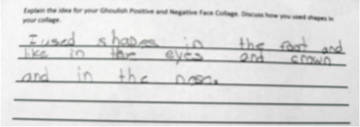 Explain the idea for your Ghoulish Positive and Negative Face Collage. Discuss how you used shapes in
your collage.
I used shapes in the and
like in the eyes and crown
and in the nose.